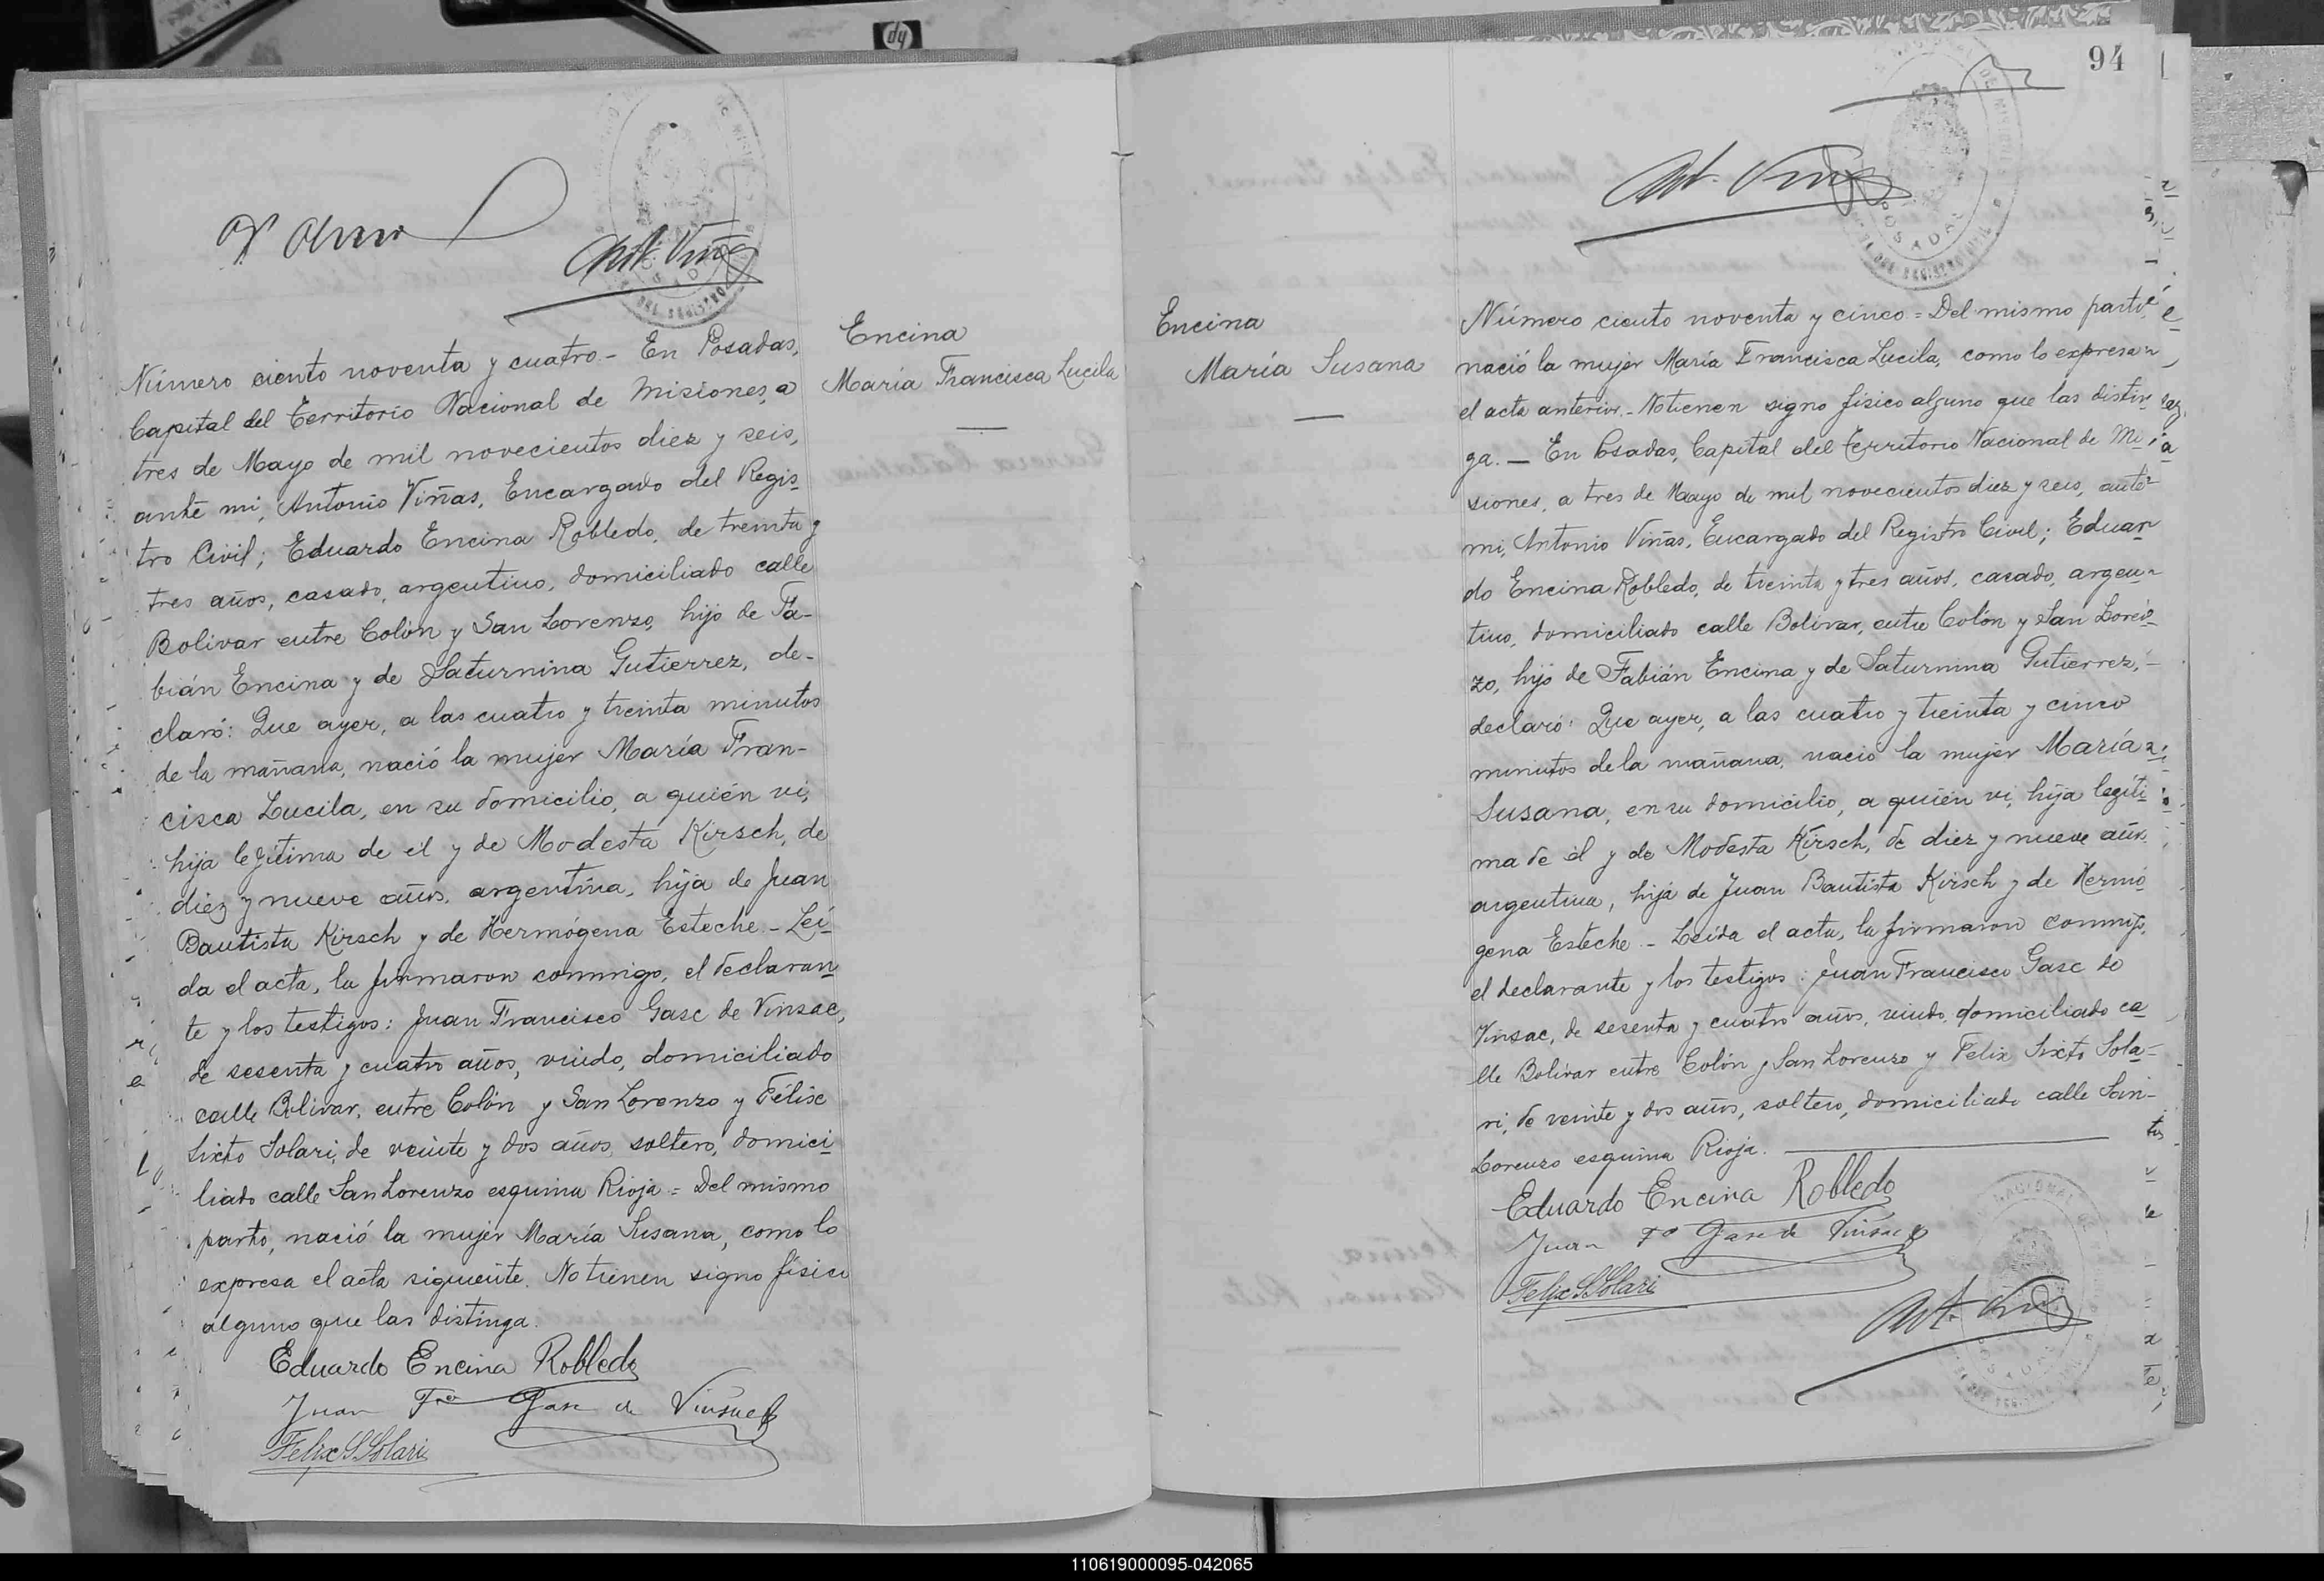 Ant. Viñas
Número ciento noventa y cuatro.- En Posadas,
Capital del Territorio Nacional de Misiones, a
tres de Mayo de mil novecientos diez y seis,
ante mi, Antonio Viñas, Encargado del Regis
tro Civil; Eduardo Encina Robledo, de treinta y
tres años, casado, argentino, domiciliado calle
Bolivar entre Colón y San Lorenzo, hijo de Fa-
bián Encina y de Saturnina Gutierrez, de-
claró: Que ayer, a las cuatro y treinta minutos
de la mañana, nació la mujer María Fran-
cisca Lucila, en su domicilio, a quién vi,
hija lejítima de él y de Modesta Kirsch, de
diez y nueve años, argentina, hija de Juan
Bautista Kirsch y de Hermógena Esteche.- Leí
da el acta, la firmaron conmigo, el declaran
te y los testigos: Juan Francisco Gasc de Vinsac,
de sesenta y cuatro años, viudo, domiciliado
calle Bolivar, entre Colón y San Lorenzo y Félix
Sixto Solari, de veinte y dos años, soltero, domici
liado calle San Lorenzo esquina Rioja = Del mismo
parto, nació la mujer María Susana, como lo
expresa el acta siguiente. No tienen signo físico
alguno que las distinga.
Eduardo Encina Robledo
Juan Fco Gasc de Vinsac
Felix S. Solari
Encina
María Francisca Lucila
94
Ant. Viñas
POSADAS
Encina
María Susana
Número ciento noventa y cinco = Del mismo parto,
nació la mujer María Francisca Lucila, como lo expresa
el acta anterior.- No tienen signo físico alguno que las distin
ga. — En Posadas, Capital del Territorio Nacional de Mi
siones, a tres de Mayo de mil novecientos diez y seis, ante
mi, Antonio Viñas, Encargado del Registro Civil; Eduar
do Encina Robledo, de treinta y tres años, casado, argen-
tino, domiciliado calle Bolivar, entre Colón y San Loren
zo, hijo de Fabián Encina y de Saturnina Gutierrez,-
declaró: Que ayer, a las cuatro y treinta y cinco
minutos de la mañana, nació la mujer María
Susana, en su domicilio, a quien vi, hija legíti
ma de él y de Modesta Kirsch, de diez y nueve años
argentina, hija de Juan Bautista Kirsch y de Hermó
gena Esteche.- Leída el acta, la firmaron conmigo,
el declarante y los testigos: Juan Francisco Gasc de
Vinsac, de sesenta y cuatro años, viudo, domiciliado ca
lle Bolivar entre Colón y San Lorenzo y Felix Sixto Sola-
ri, de veinte y dos años, soltero, domiciliado calle San-
Lorenzo esquina Rioja.
Eduardo Encina Robledo
Juan Fo Gasc de Vinsac
Felix S. Solari
Ant. Viñas
110619000095-042065